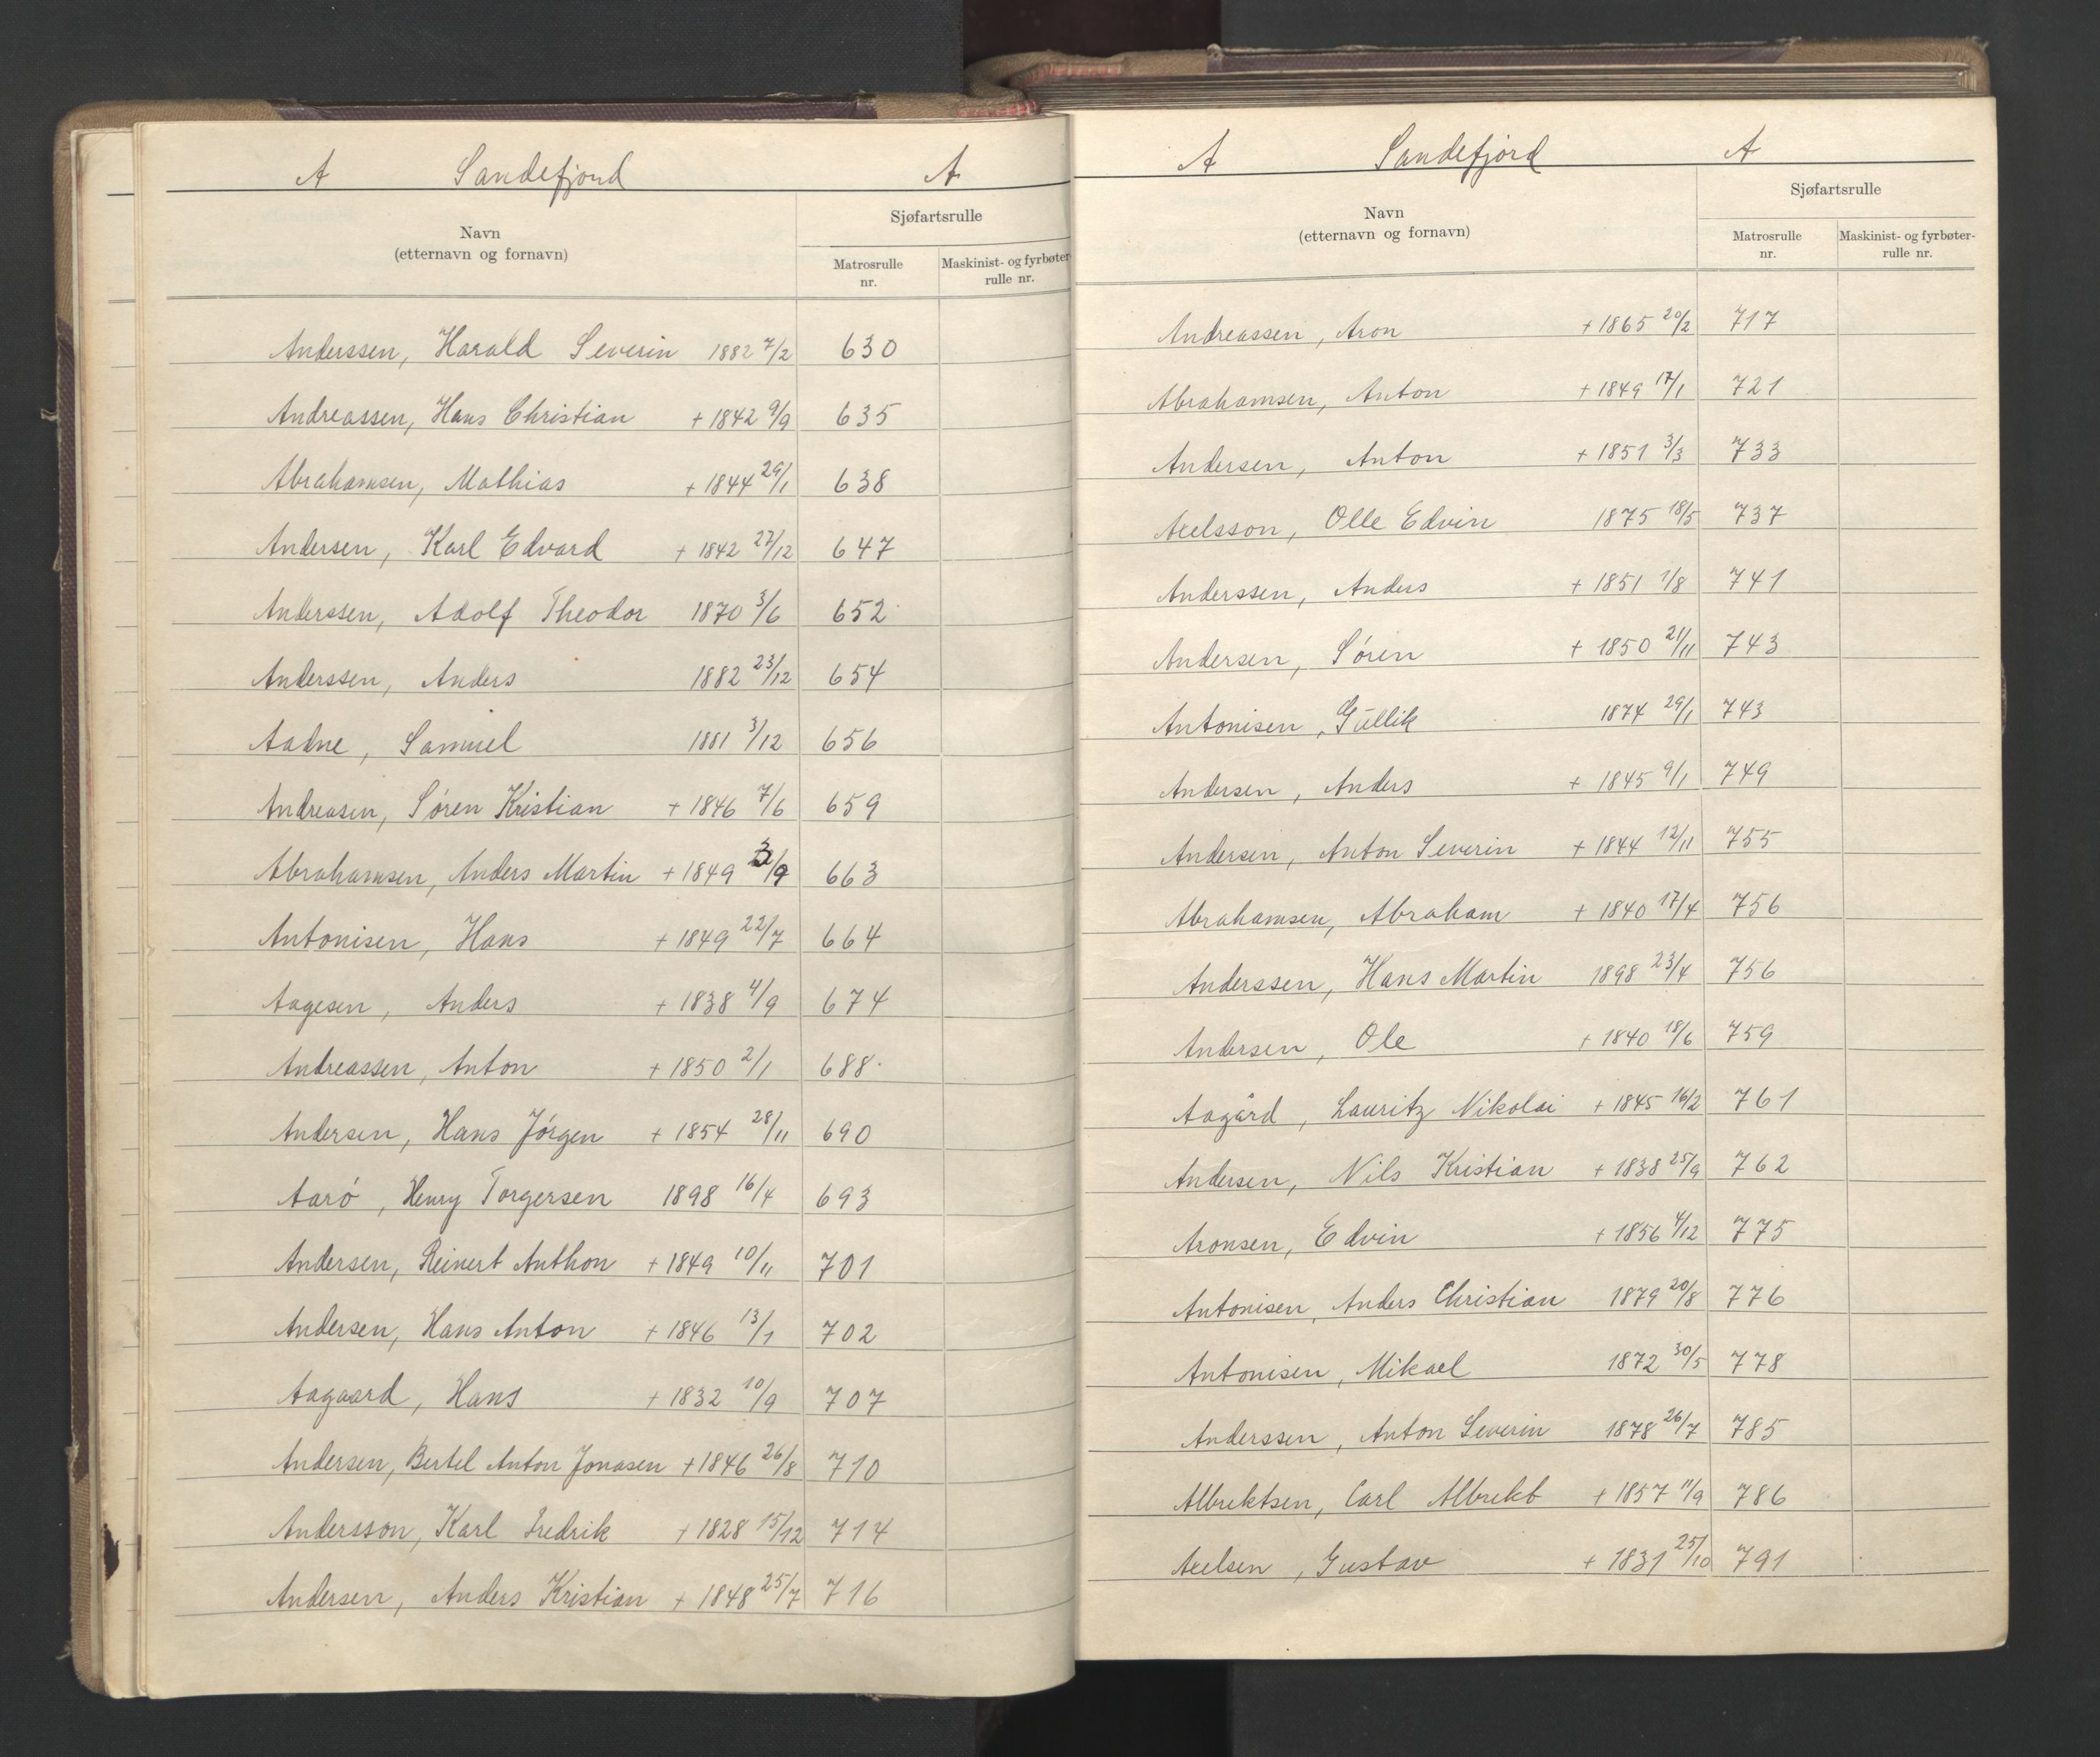 A Sandefjord A
Navn
(etternavn og fornavn)
Sjøfartsrulle
Matrosrulle
nr.
Maskinist- og fyrbøter-
rulle nr.
Anderssen, Harald Severin 1882 7/2 630
Andreassen, Hans Christian + 1842 9/9 635
Abrahamsen, Mathias + 1844 29/1 638
Andersen, Karl Edvard + 1842 27/12 647
Anderssen, Adolf Theodor 1870 3/6 652
Anderssen, Anders 1882 23/12 654
Aadne, Samuel 1881 3/12 656
Andreasen, Søren Kristian + 1846 7/6 659
Abrahamsen, Anders Martin + 1849 3/9 663
Antonisen, Hans + 1849 22/7 664
Aagesen, Anders + 1838 4/9 674
Andreassen, Anton + 1850 2/1 688
Andersen, Hans Jørgen + 1854 28/11 690
Aarø, Henry Torgersen 1898 16/4 693
Andersen, Reinert Anthon + 1849 10/11 701
Andersen, Hans Anton + 1846 13/1 702
Aagaard, Hans + 1832 10/9 707
Andersen, Bertel Anton Jonasen + 1846 26/8 710
Andersson, Karl Fredrik + 1828 15/12 714
Andersen, Anders Kristian + 1848 25/7 716
A Sandefjord A
Navn
(etternavn og fornavn)
Sjøfartsrulle
Matrosrulle
nr.
Maskinist- og fyrbøter-
rulle nr.
Andreassen, Aron + 1865 20/2 717
Abrahamsen, Anton + 1849 17/1 721
Andersen, Anton + 1851 3/3 733
Axelsson, Olle Edvin 1875 18/5 737
Anderssen, Anders + 1851 1/8 741
Andersen, Søren + 1850 21/11 743
Antonisen, Gullik 1874 29/1 743
Andersen, Anders + 1845 9/1 749
Andersen, Anton Severin + 1844 12/11 755
Abrahamsen, Abraham + 1840 17/4 756
Anderssen, Hans Martin 1898 23/4 756
Andersen, Ole + 1840 18/6 759
Aagård, Lauritz Nikolai + 1845 16/2 761
Andersen, Nils Kristian + 1838 25/9 762
Aronsen, Edvin + 1856 4/12 775
Antonisen, Anders Christian 1879 20/8 776
Antonisen, Mikael 1872 30/5 778
Anderssen, Anton Severin 1878 26/7 785
Albrektsen, Carl Albrekt + 1857 11/9 786
Axelsen, Gustav + 1831 25/10 791